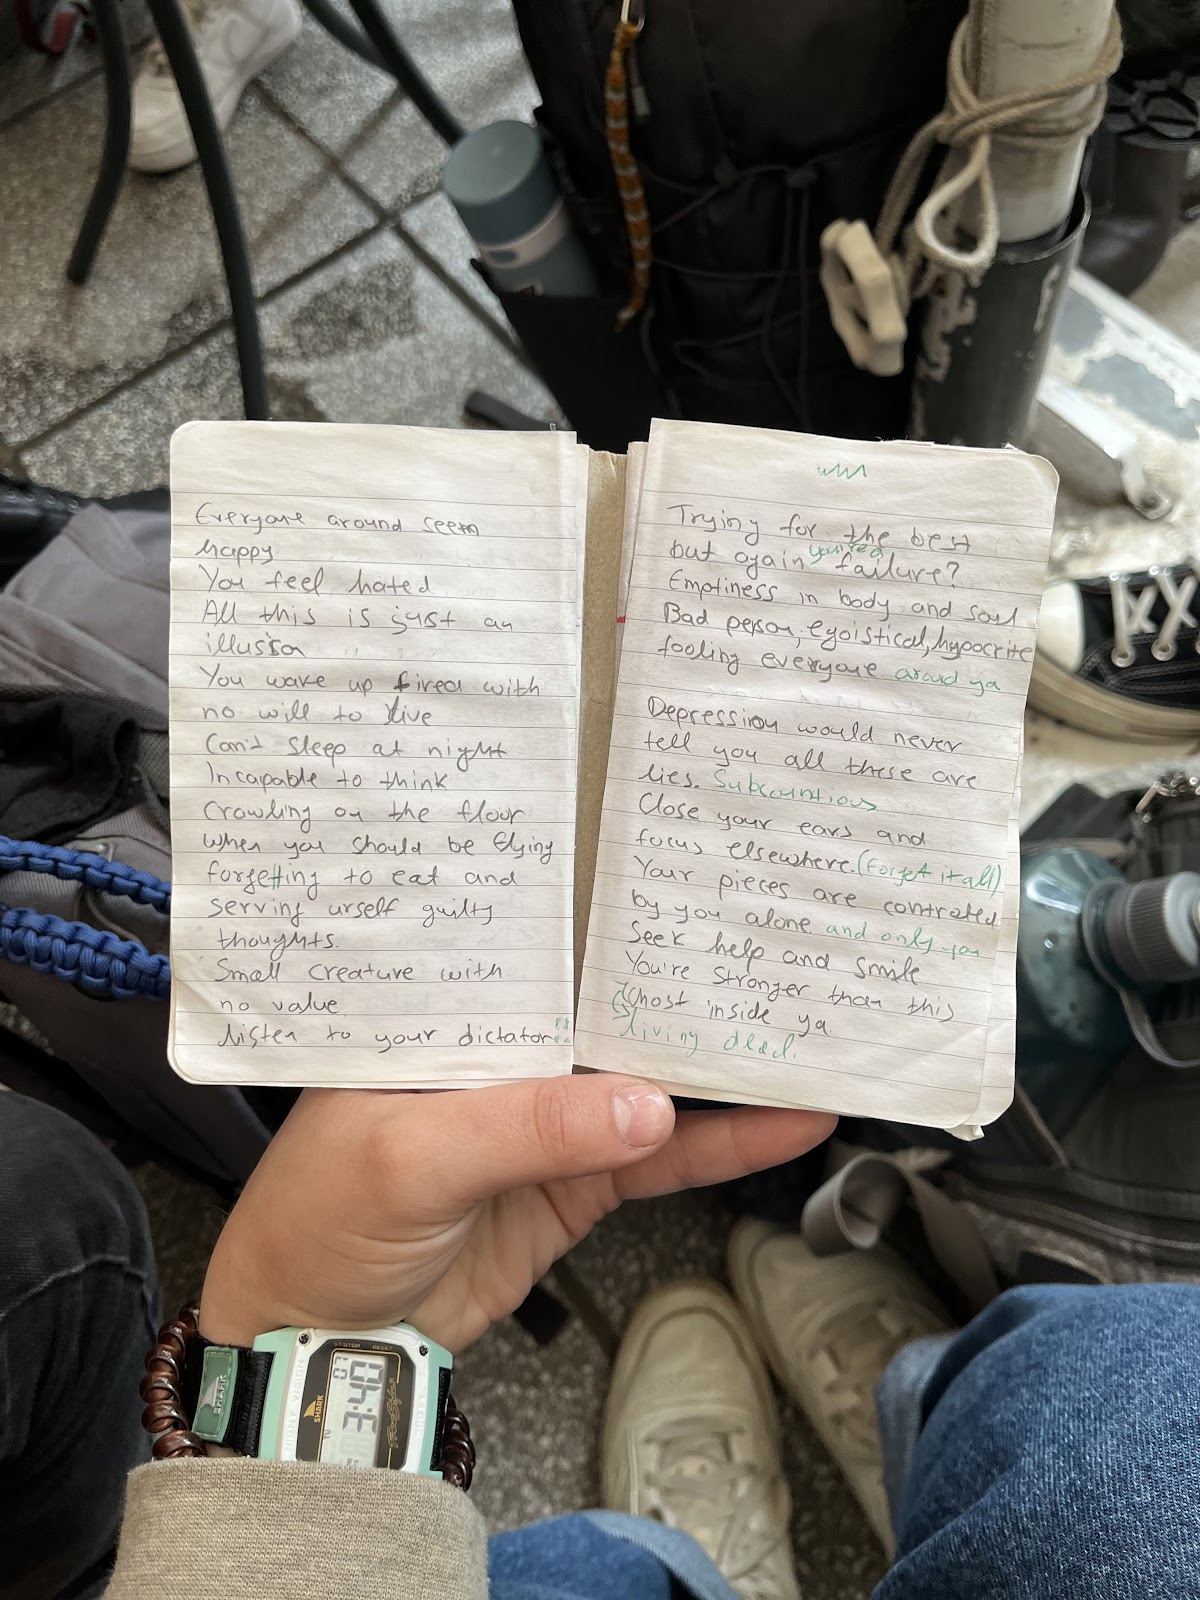 Everyone around seem
happy
You feel hated
All this is just an
illusion
You wake up tired with
no will to live
Can't sleep at night
Incapable to think
Crowling on the floor
when you should be flying
forgetting to eat and
serving urself guilty
thoughts.
Small creature with
no value
listen to your dictator!!
Trying for the best
but again failure?
Emptiness in body and soul
Bad person, egoistical, hypocrite
fooling everyone around ya
Depression would never
tell you all these are
lies. Subcountious
Close your ears and
focus elsewhere. (Forget it all)
Your pieces are controled
by you alone and only you
Seek help and smile
You're stronger than this
Ghost inside ya.
living dead.
ST/STOP
RESET
SHARK
SHARK
NIGHT VISION